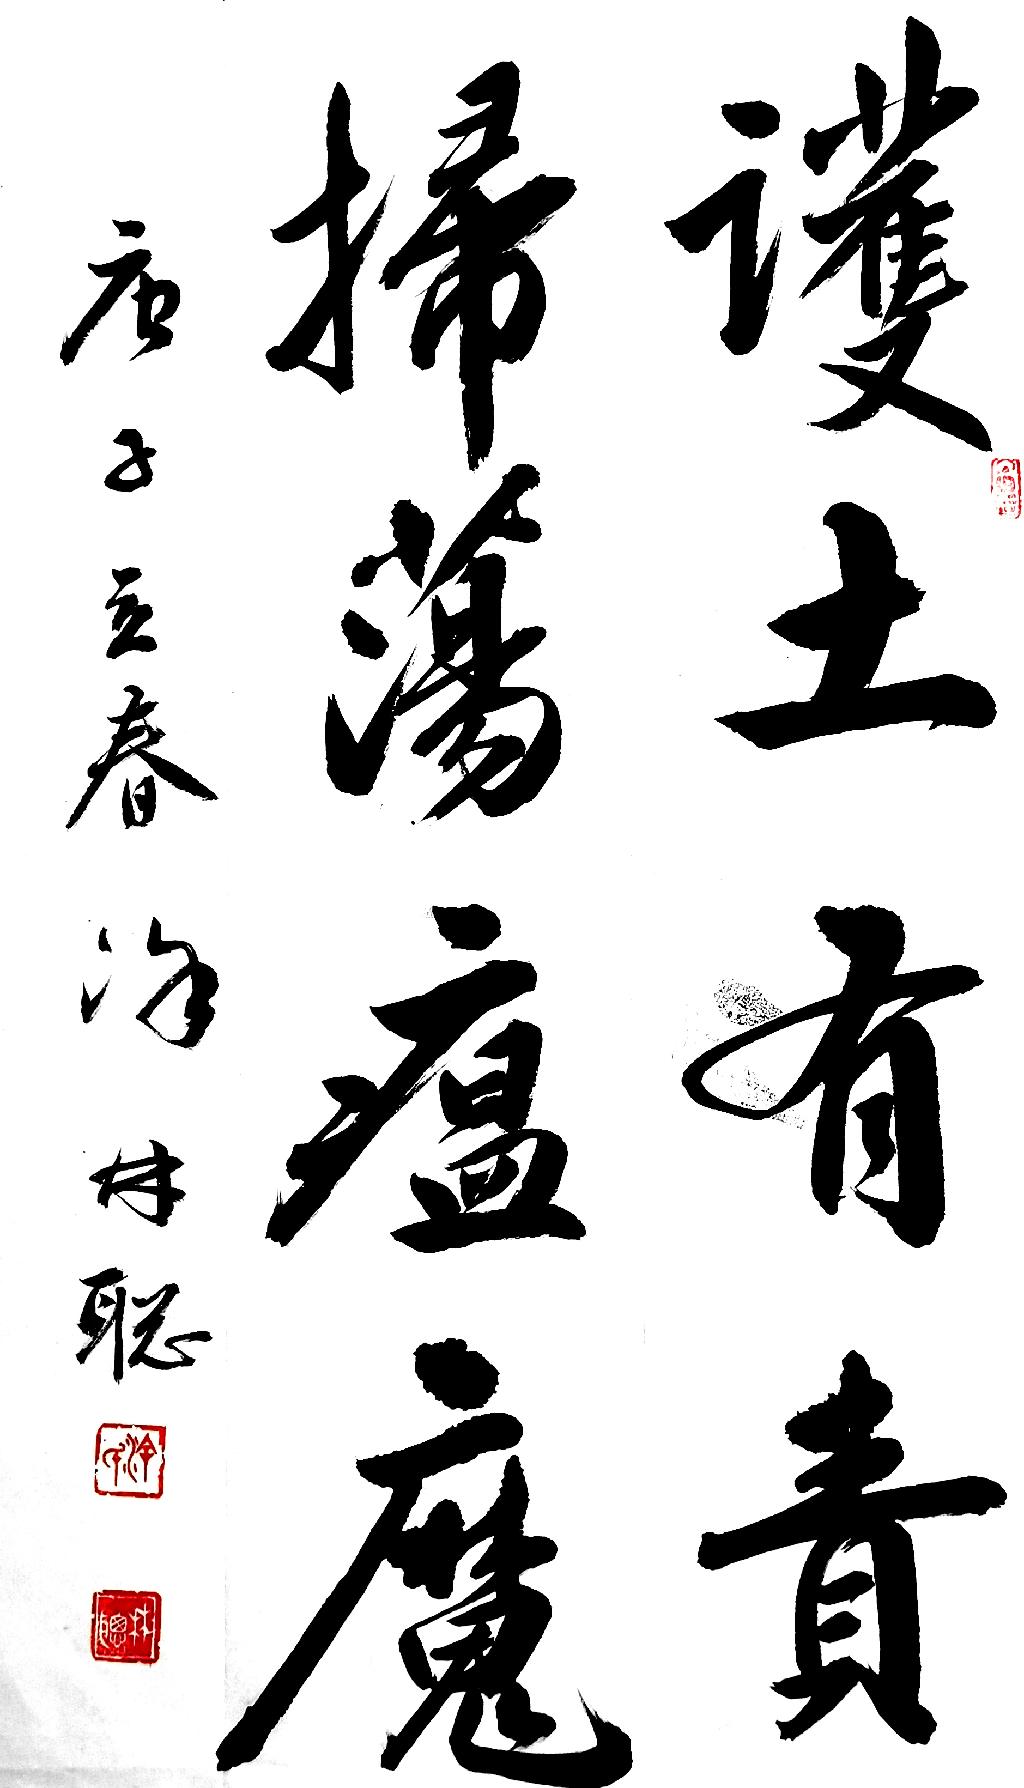 護土有責
掃蕩瘟魔
庚子立春 涂林聪
林聰